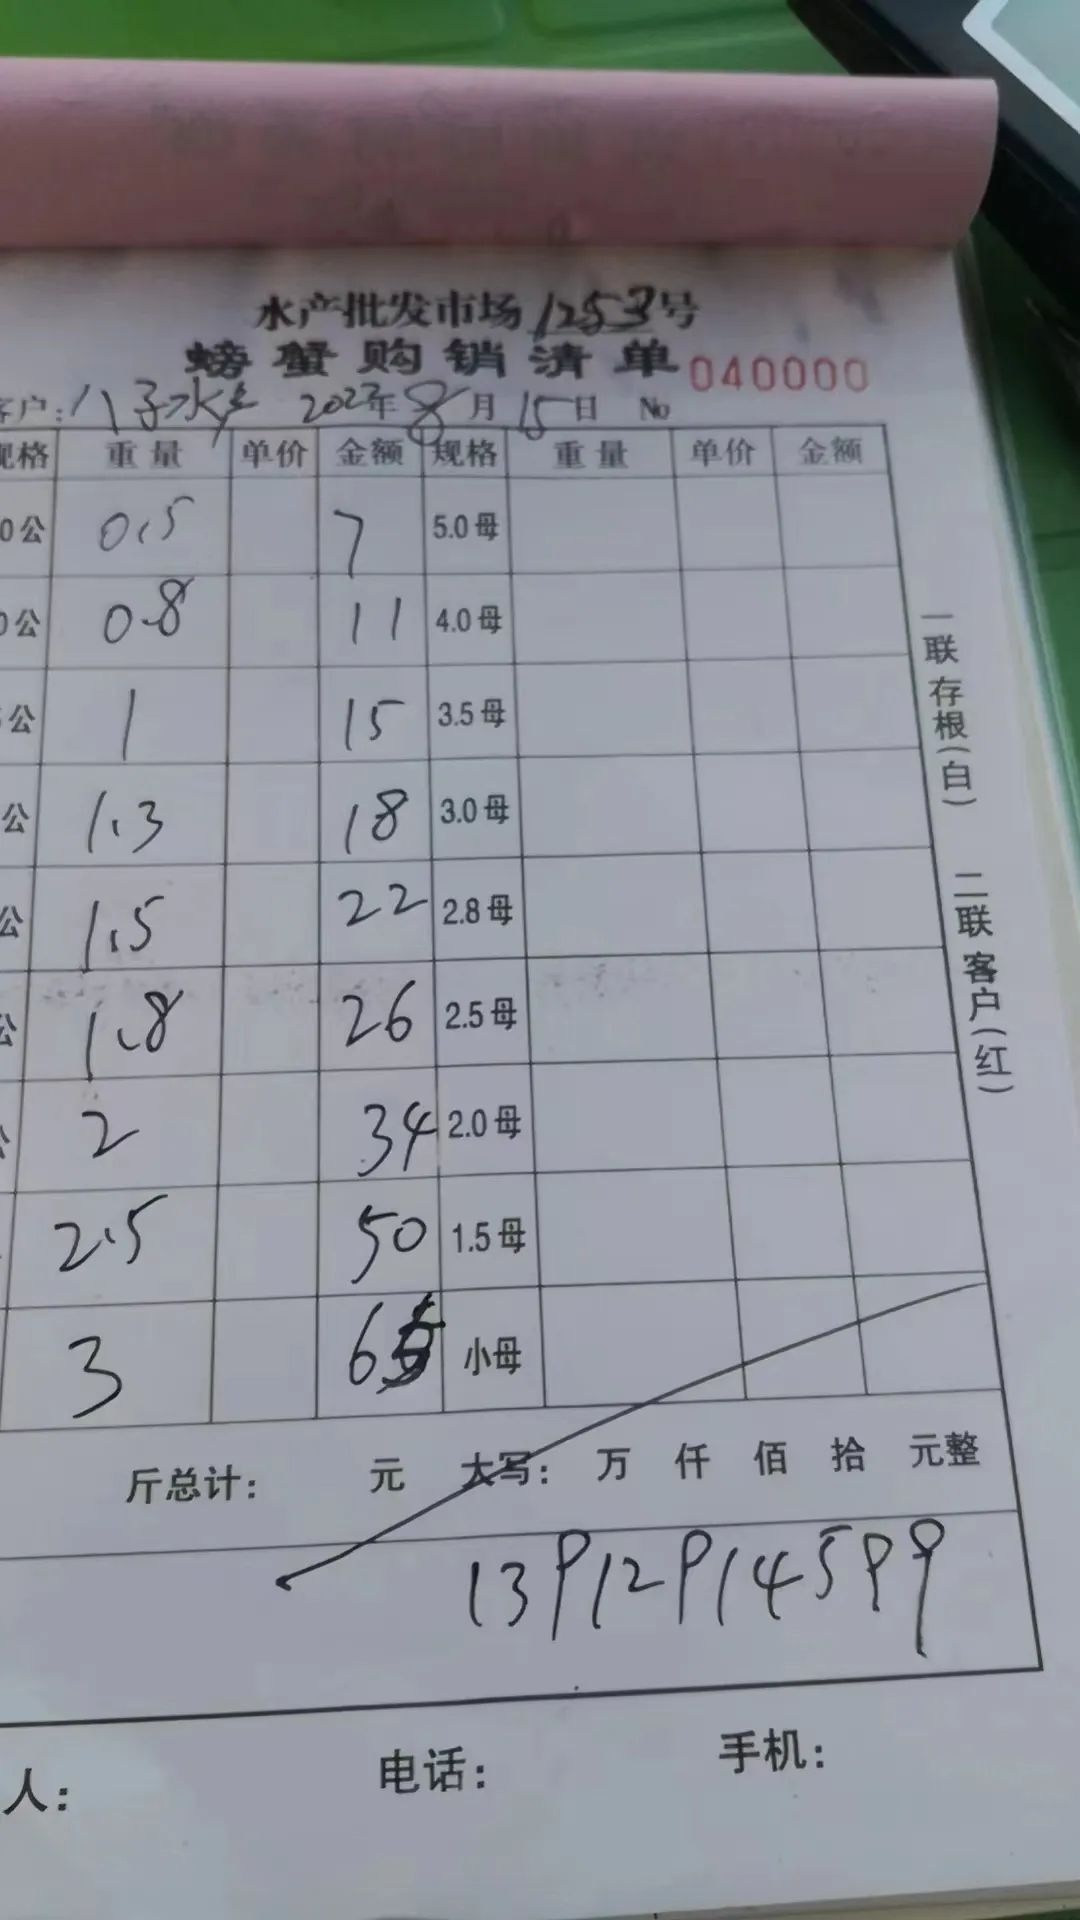 水产批发市场1253号
螃蟹购销清单 040000
客户: 八子水 2023年8月15日 No
规格 重量 单价 金额 规格 重量 单价 金额
0公 0.5 7 5.0母
0公 0.8 11 4.0母
公 1 15 3.5母
公 1.3 18 3.0母
公 1.5 22 2.8母
公 1.8 26 2.5母
公 2 34 2.0母
2.5 50 1.5母
3 65 小母
斤总计: 元 大写: 万 仟 佰 拾 元整
13912914599
人: 电话: 手机:
一联存根(白) 二联客户(红)